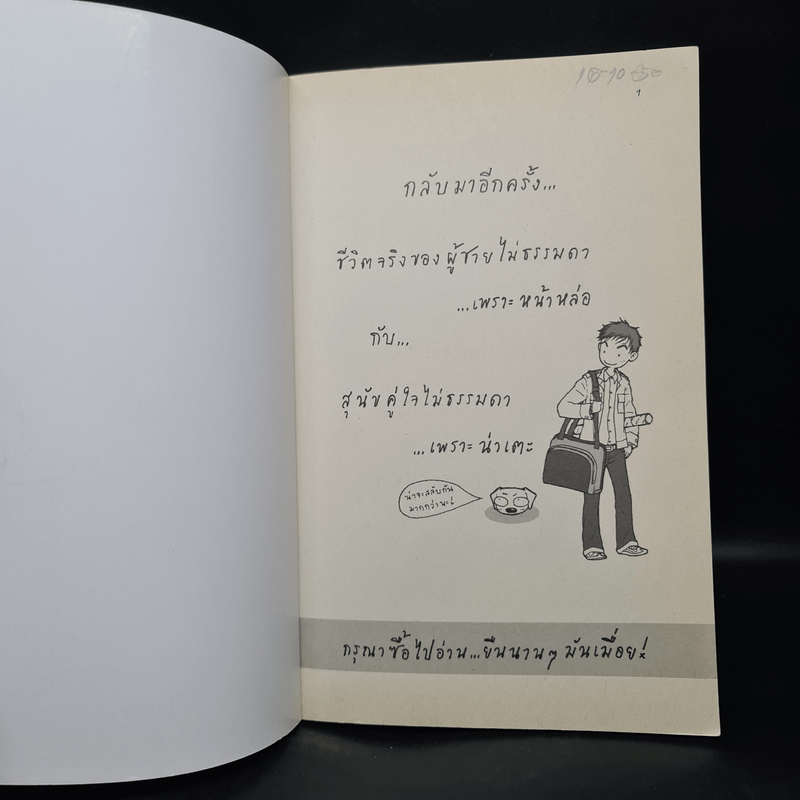 1
กลับมาอีกครั้ง...
ชีวิตจริงของผู้ชายไม่ธรรมดา
...เพราะหน้าหล่อ
กับ...
สุนัขคู่ใจไม่ธรรมดา
...เพราะน่าเตะ
น่าจะสลับกัน
มากกว่านะ!
กรุณาซื้อไปอ่าน...ยืนนานๆ มันเมื่อย!